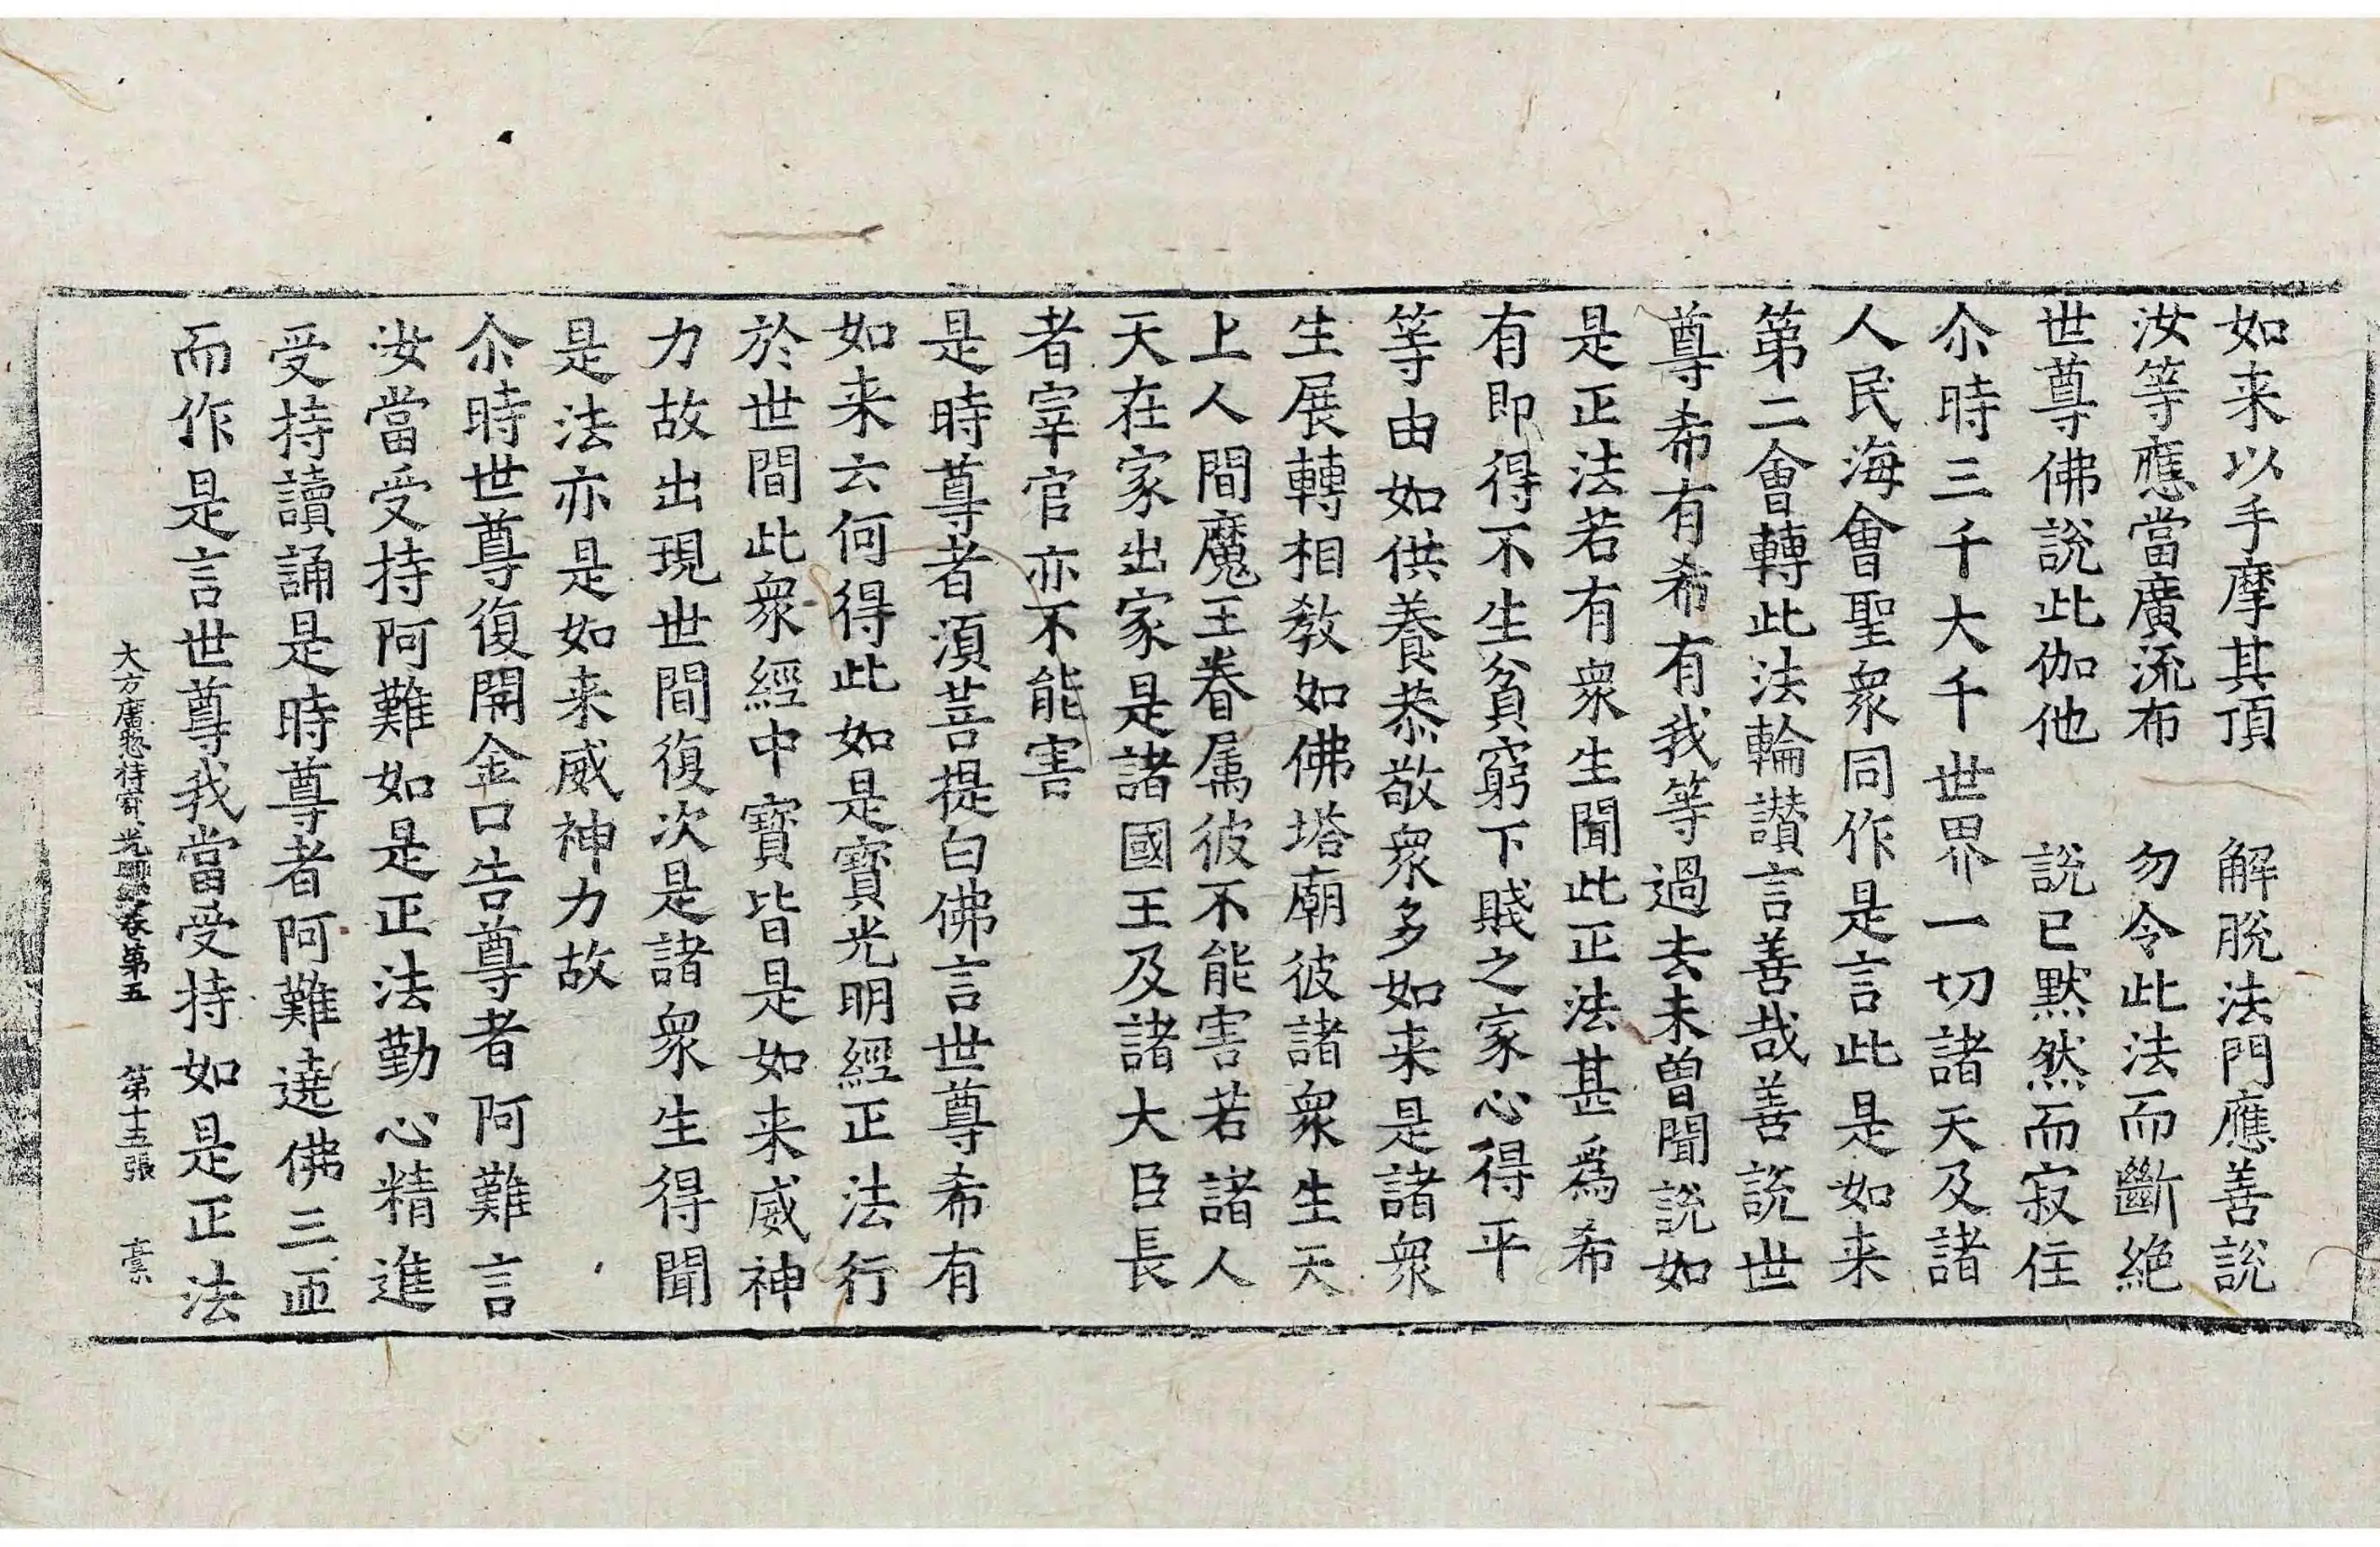 如来以手摩其頂　解脫法門應善說
汝等應當廣流布　勿令此法而斷絕
世尊佛說此伽他　說已默然而寂住
尒時三千大千世界一切諸天及諸
人民海會聖衆同作是言此是如来
第二會轉此法輪讃言善哉善說世
尊希有希有我等過去未曽聞說如
是正法若有衆生聞此正法甚爲希
有即得不生貧窮下賤之家心得平
等由如供養恭敬衆多如来是諸衆
生展轉相教如佛塔廟彼諸衆生天
上人間魔王眷属彼不能害若諸人
天在家出家是諸國王及諸大臣長
者宰官亦不能害
是時尊者湏菩提白佛言世尊希有
如来云何得此如是寶光明經正法行
於世間此衆經中寶皆是如来威神
力故出現世間復次是諸衆生得聞
是法亦是如来威神力故
尒時世尊復開金口告尊者阿難言
汝當受持阿難如是正法勤心精進
受持讀誦是時尊者阿難遶佛三帀
而作是言世尊我當受持如是正法
大方廣惣持寳光明經卷第五　第十五張　稾